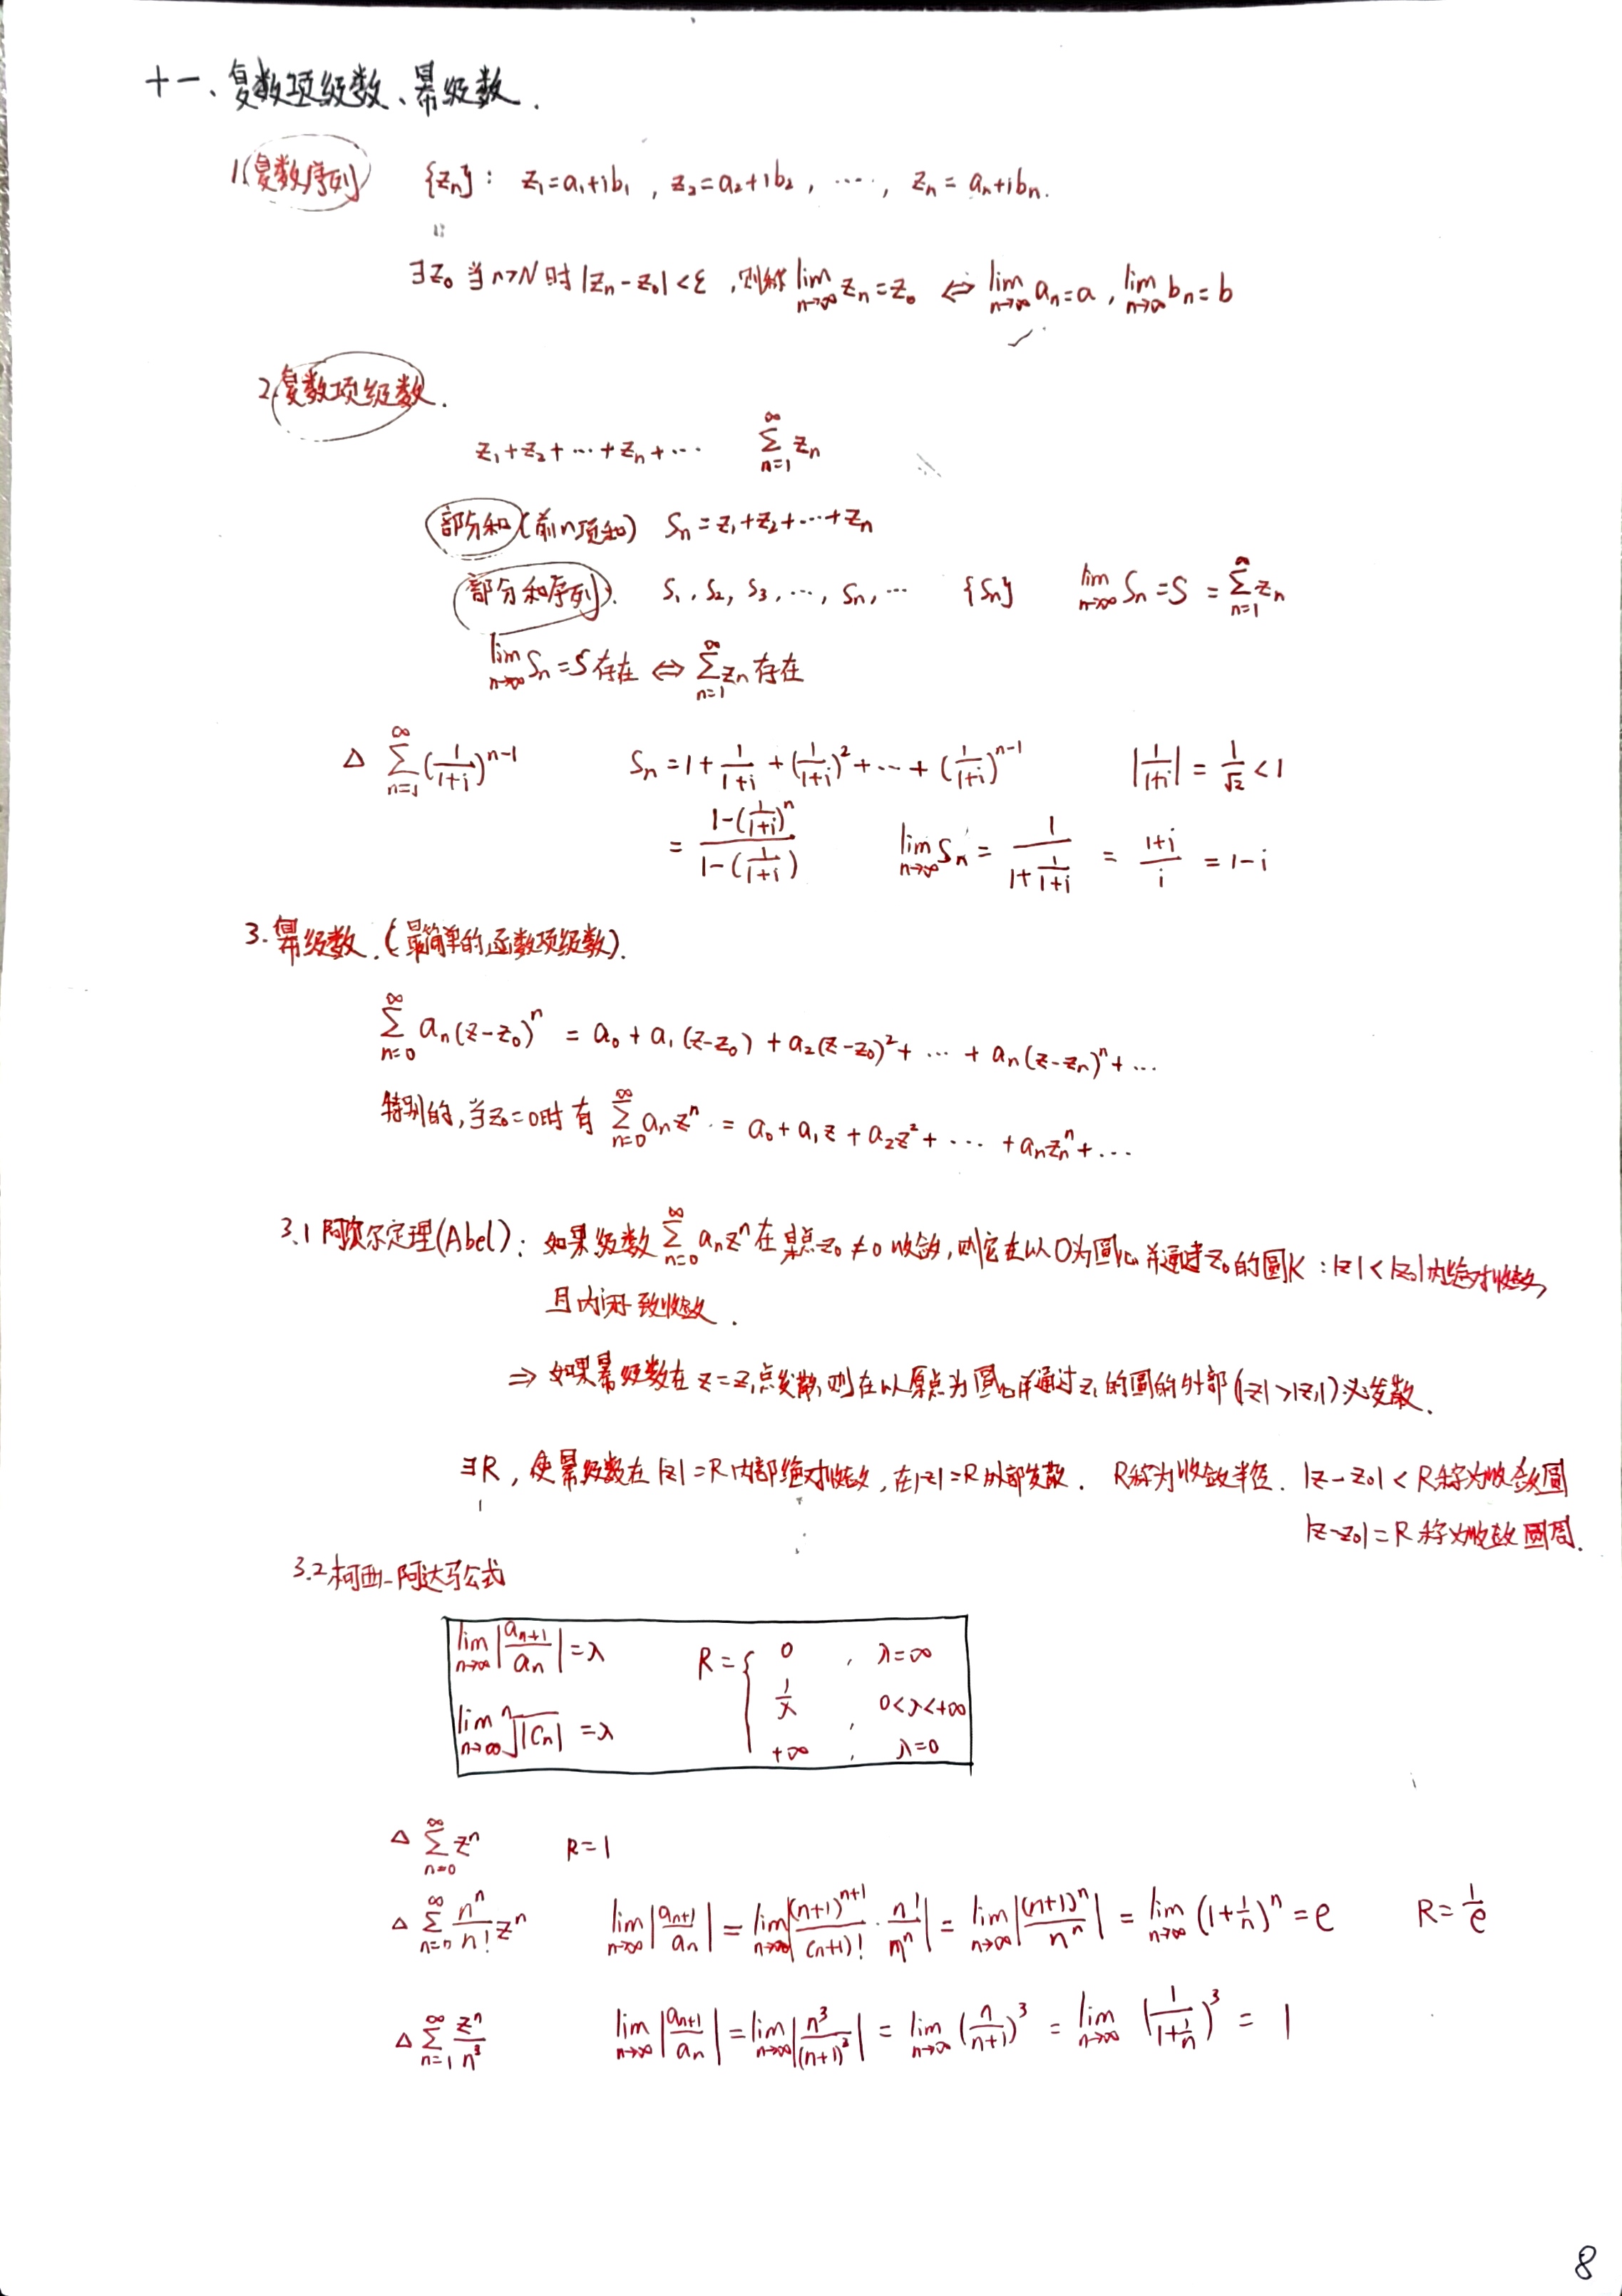 十一、复数项级数、幂级数.
1.复数序列 {zₙ}: z₁=a₁+ib₁, z₂=a₂+ib₂, ⋯⋯, zₙ=aₙ+ibₙ.
∃z₀ 当n>N时 |zₙ-z₀|<ε, 则称 lim_{n→∞} zₙ=z₀ ⇔ lim_{n→∞} aₙ=a, lim_{n→∞} bₙ=b
2.复数项级数.
z₁+z₂+⋯+zₙ+⋯ ∑_{n=1}^{∞} zₙ
部分和(前n项和) Sₙ=z₁+z₂+⋯+zₙ
部分和序列). S₁, S₂, S₃, ⋯, Sₙ, ⋯ {Sₙ} lim_{n→∞} Sₙ=S=∑_{n=1}^{∞} zₙ
lim_{n→∞} Sₙ=S存在 ⇔ ∑_{n=1}^{∞} zₙ存在
△ ∑_{n=1}^{∞} (1/(1+i))^{n-1} Sₙ=1+1/(1+i)+(1/(1+i))²+⋯+(1/(1+i))^{n-1} |1/(1+i)|=1/√2<1
= (1-(1/(1+i))ⁿ)/(1-(1/(1+i))) lim_{n→∞} Sₙ = 1/(1+1/(1+i)) = (1+i)/i = 1-i
3.幂级数.(最简单的函数项级数).
∑_{n=0}^{∞} aₙ(z-z₀)ⁿ = a₀+a₁(z-z₀)+a₂(z-z₀)²+⋯+aₙ(z-zₙ)ⁿ+⋯
特别的,当z₀=0时 有 ∑_{n=0}^{∞} aₙzⁿ = a₀+a₁z+a₂z²+⋯+aₙzₙⁿ+⋯
3.1 阿贝尔定理(Abel): 如果级数∑_{n=0}^{∞} aₙzⁿ在某点z₀≠0收敛,则它在以O为圆心并通过z₀的圆K:|z|<|z₀|内绝对收敛,
且内闭一致收敛.
⇒ 如果幂级数在z=z₁点发散,则在以原点为圆心并通过z₁的圆的外部(|z|>|z₁|)必发散.
∃R, 使幂级数在|z|=R内部绝对收敛,在|z|=R外部发散. R称为收敛半径. |z-z₀|<R称为收敛圆
|z-z₀|=R称为收敛圆周.
3.2柯西-阿达马公式
lim_{n→∞} |aₙ₊₁/aₙ|=λ R={ 0 , λ=∞
1/λ , 0<λ<+∞
lim_{n→∞} ⁿ√|Cₙ| =λ +∞ , λ=0
△ ∑_{n=0}^{∞} zⁿ R=1
△ ∑_{n=0}^{∞} (nⁿ/n!)zⁿ lim_{n→∞} |aₙ₊₁/aₙ| = lim_{n→∞} |(n+1)^{n+1}/(n+1)! · n!/nⁿ| = lim_{n→∞} |(n+1)ⁿ/nⁿ| = lim_{n→∞} (1+1/n)ⁿ = e R=1/e
△ ∑_{n=1}^{∞} zⁿ/n³ lim_{n→∞} |aₙ₊₁/aₙ| = lim_{n→∞} |n³/(n+1)³| = lim_{n→∞} (n/(n+1))³ = lim_{n→∞} (1/(1+1/n))³ = 1
8